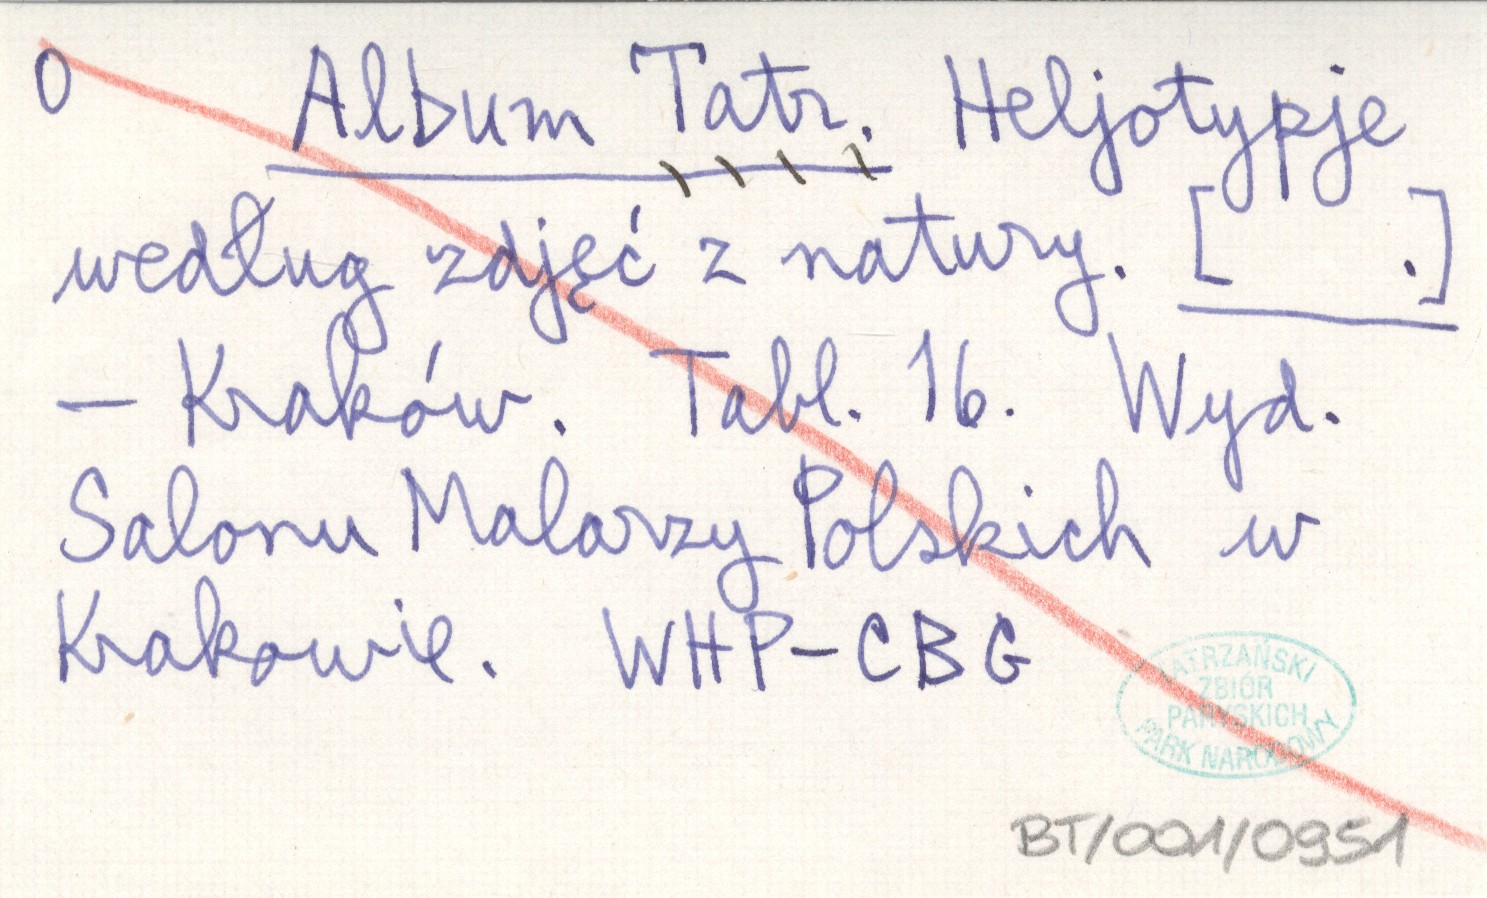 0 Album Tatr. Heljotypje
według zdjęć z natury. [ .]
— Kraków. Tabl. 16. Wyd.
Salonu Malarzy Polskich w
Krakowie. WHP-CBG
TATRZAŃSKI
ZBIÓR
PARYSKICH
PARK NARODOWY
BT/001/0951